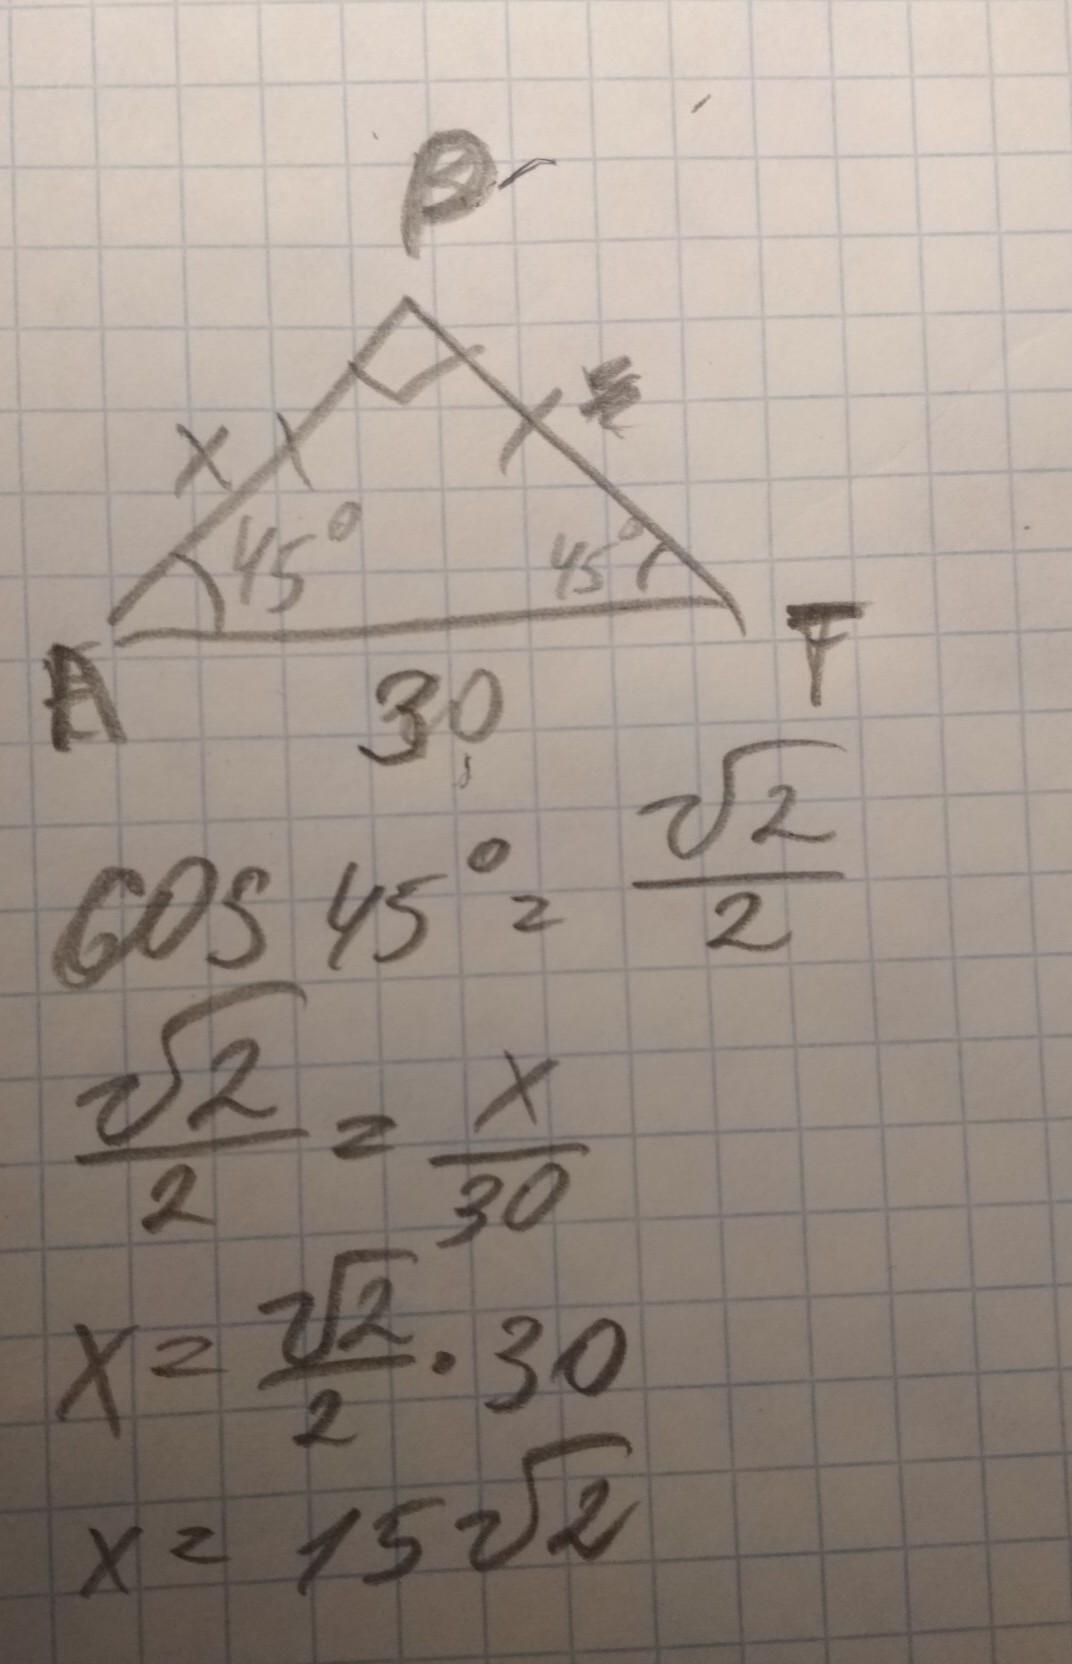 P
x
45° 45°
A T
30
cos 45° = √2/2
√2/2 = x/30
x = √2/2 · 30
x = 15√2